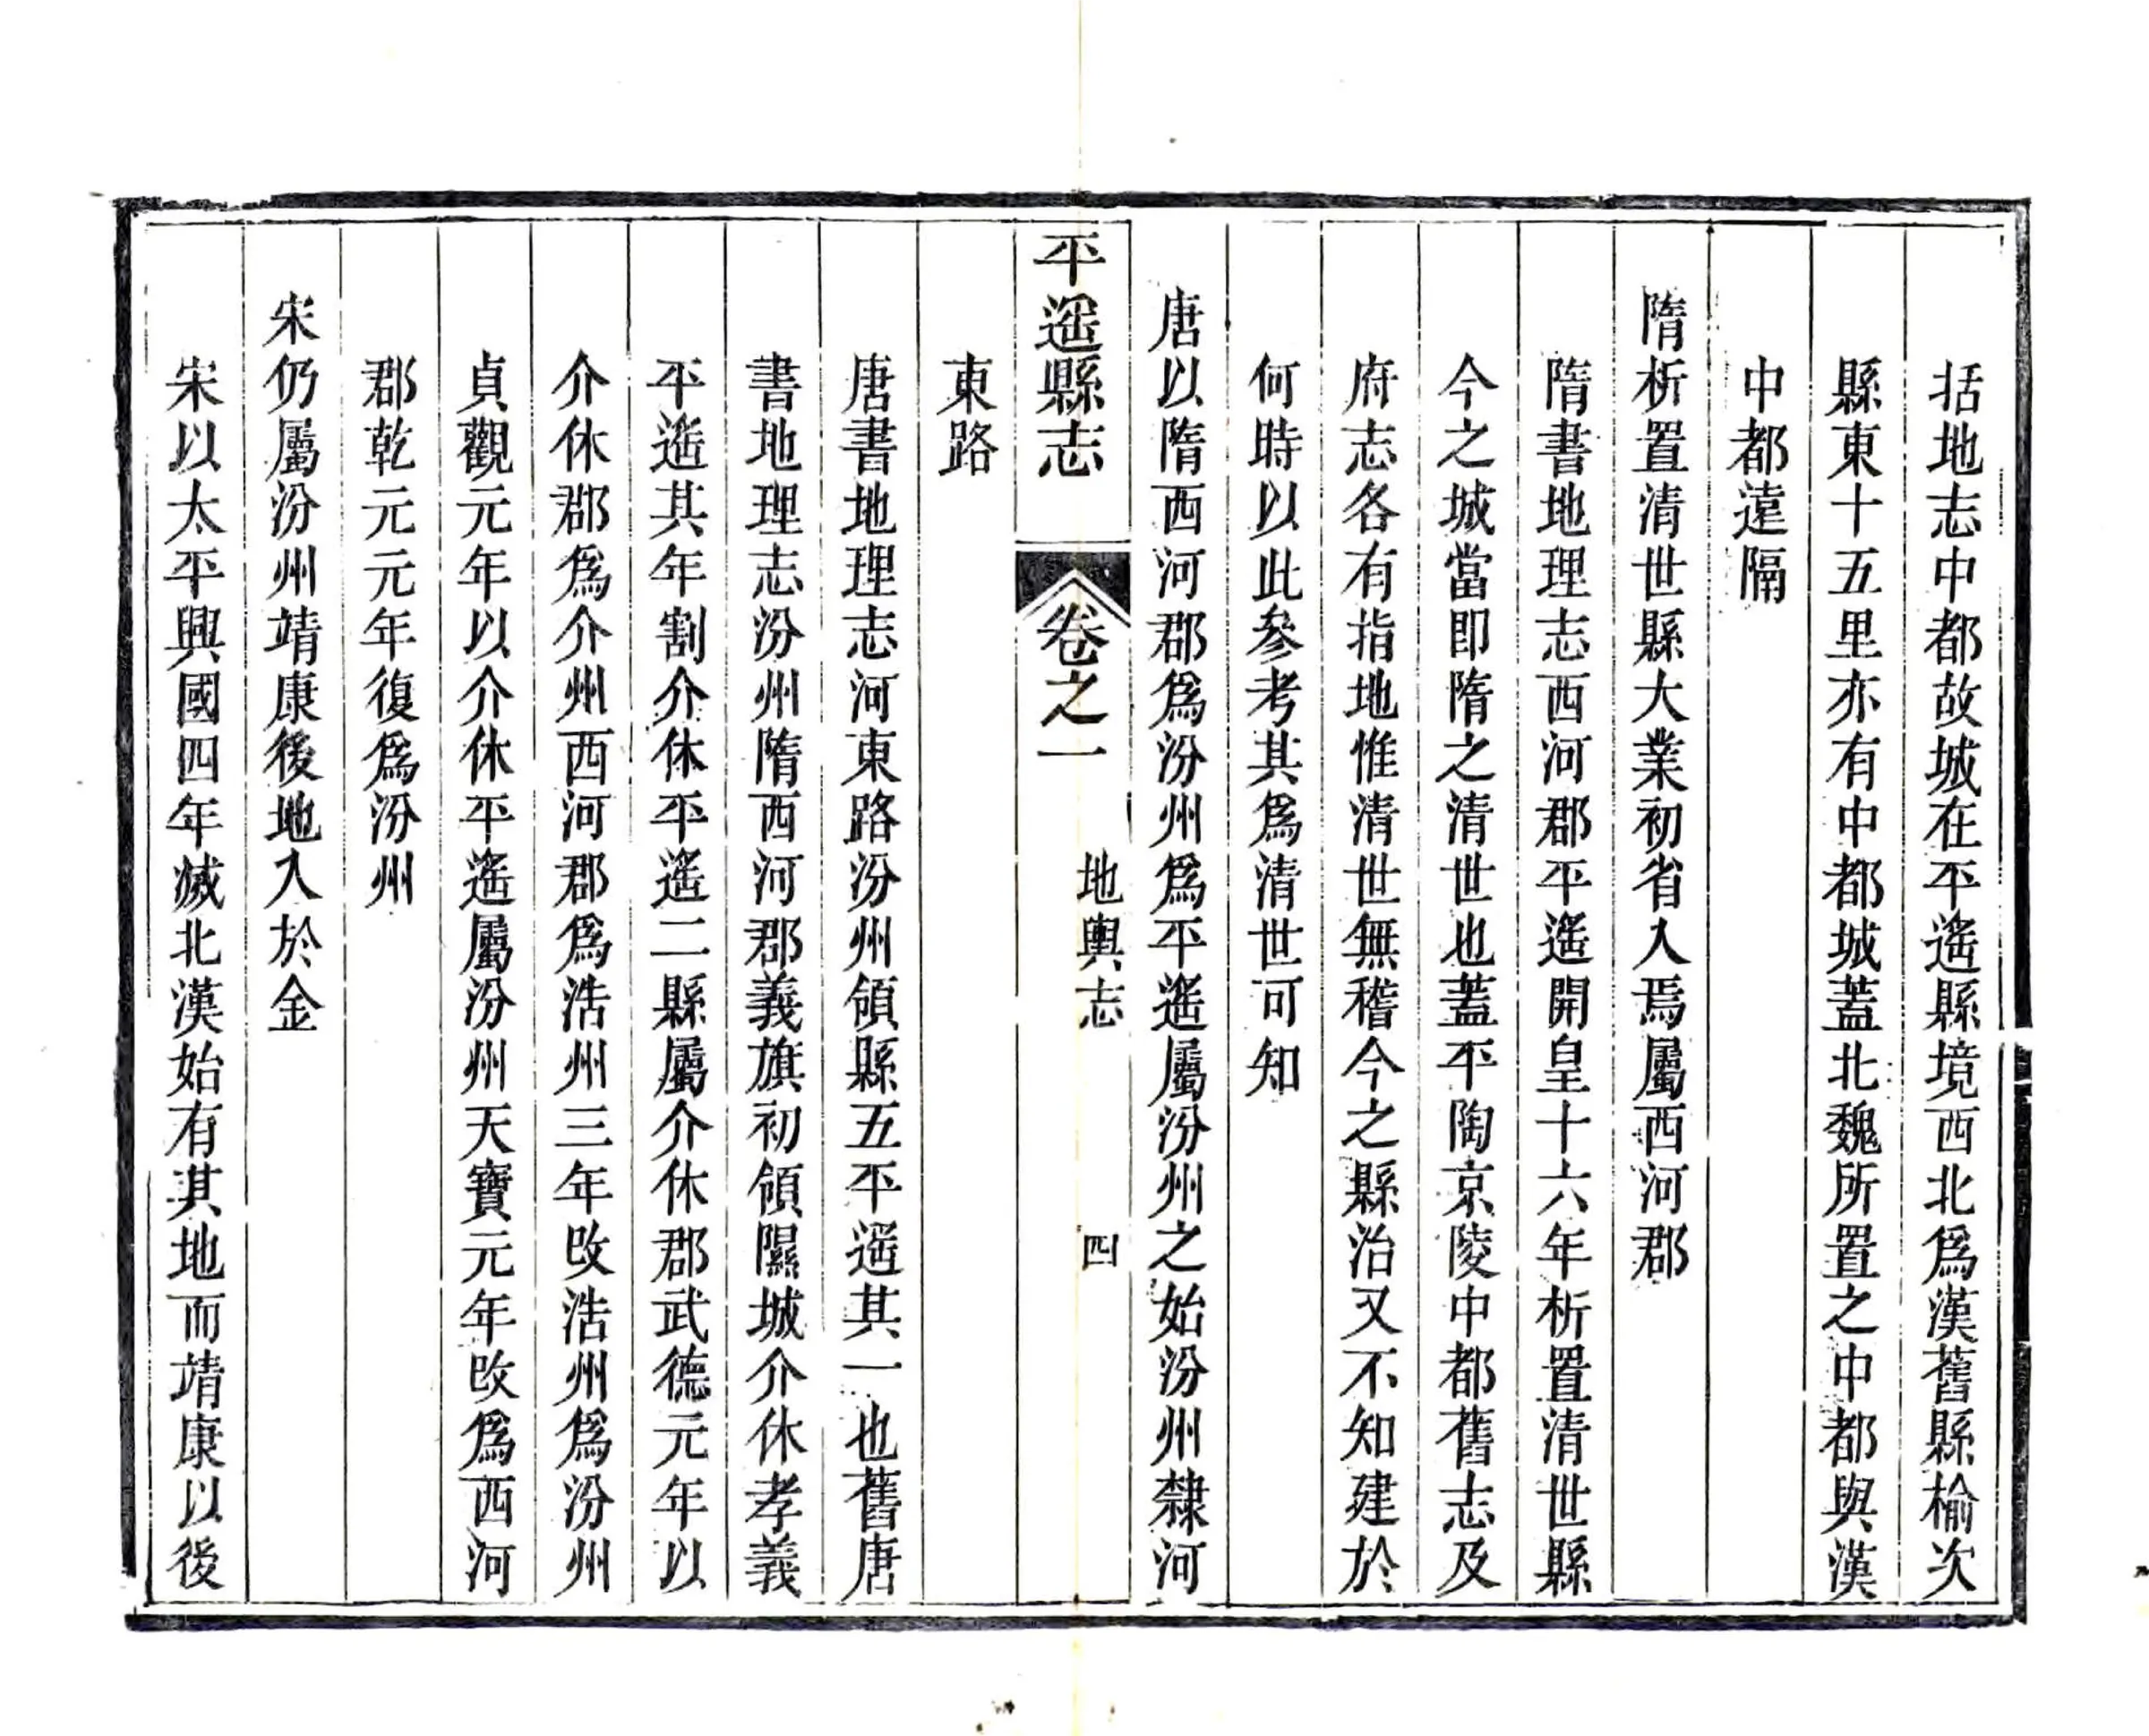 括地志中都故城在平遙縣境西北爲漢舊縣榆次
縣東十五里亦有中都城蓋北魏所置之中都與漢
中都遠隔
隋析置清世縣大業初省入焉屬西河郡
隋書地理志西河郡平遙開皇十六年析置清世縣
今之城當即隋之清世也蓋平陶京陵中都舊志及
府志各有指地惟清世無稽今之縣治又不知建於
何時以此參考其爲清世可知
唐以隋西河郡爲汾州爲平遙屬汾州之始汾州隸河
平遥縣志
卷之一
地輿志
四
東路
唐書地理志河東路汾州領縣五平遥其一也舊唐
書地理志汾州隋西河郡義旗初領隰城介休孝義
平遙其年割介休平遙二縣屬介休郡武德元年以
介休郡爲介州西河郡爲浩州三年改浩州爲汾州
貞觀元年以介休平遙屬汾州天寶元年改爲西河
郡乾元元年復爲汾州
宋仍屬汾州靖康後地入於金
宋以太平興國四年滅北漢始有其地而靖康以後